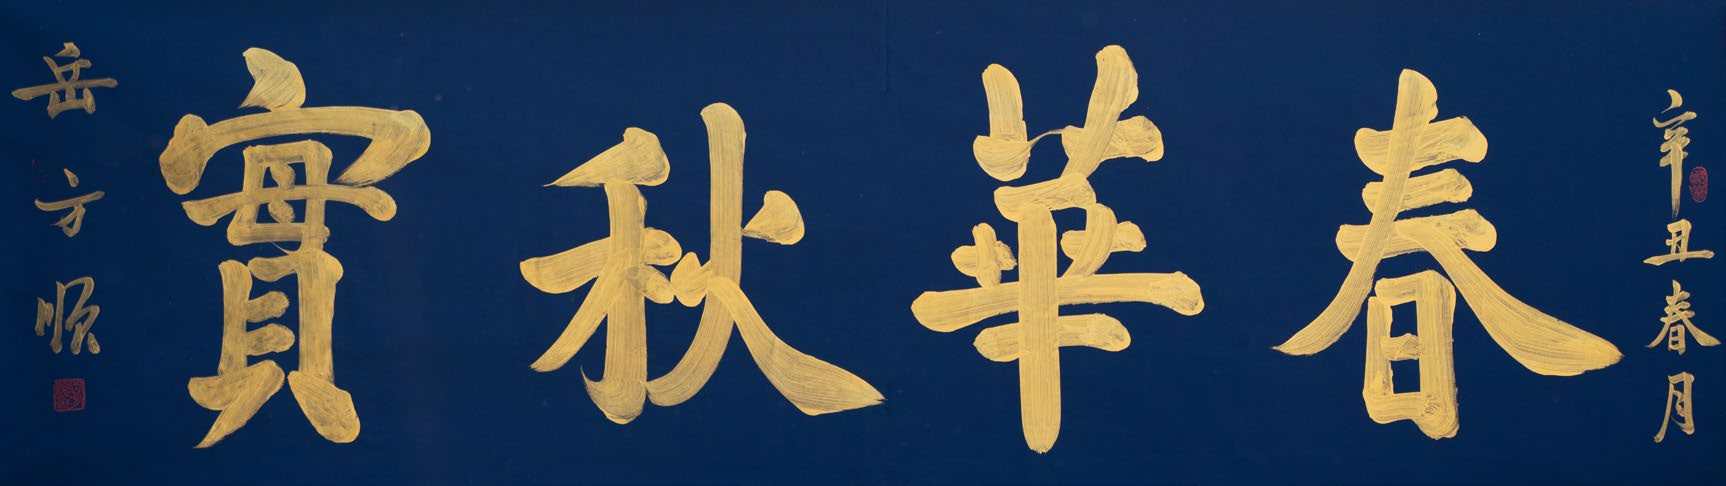 辛丑春月
春華秋實
岳方顺